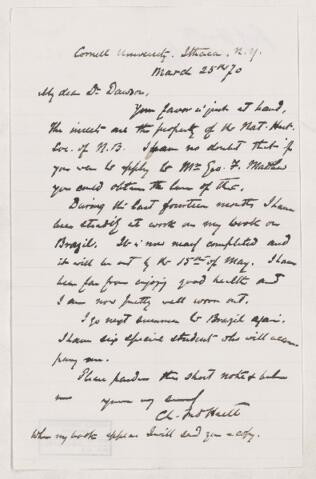 Cornell University, Ithaca, N.Y.
March 25th 70
My dear Dr Dawson,
Your favor is just at hand,
the insects are the property of the Nat. Hist.
Soc. of N.B. I have no doubt that if
you were to apply to Mr Geo. F. Matthew
you could obtain the loan of them.
During the last fourteen months I have
been steadily at work on my book on
Brazil. It is now nearly completed and
it will be out by the 15th of May. I have
been far from enjoying good health and
I am now pretty well worn out.
I go next summer to Brazil again.
I have six special students who will accom
pany me.
Please pardon this short note & believe
me yours very sincerely
Ch. Fred Hartt
When my book appears I will send you a copy.